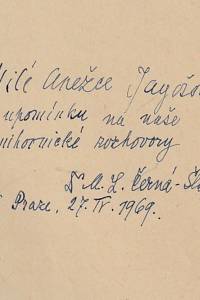 Milé Anežce
upomínku na naše
knihovnické rozhovory
Dr M. L. Černá-
Praze, 27. IV. 1969.